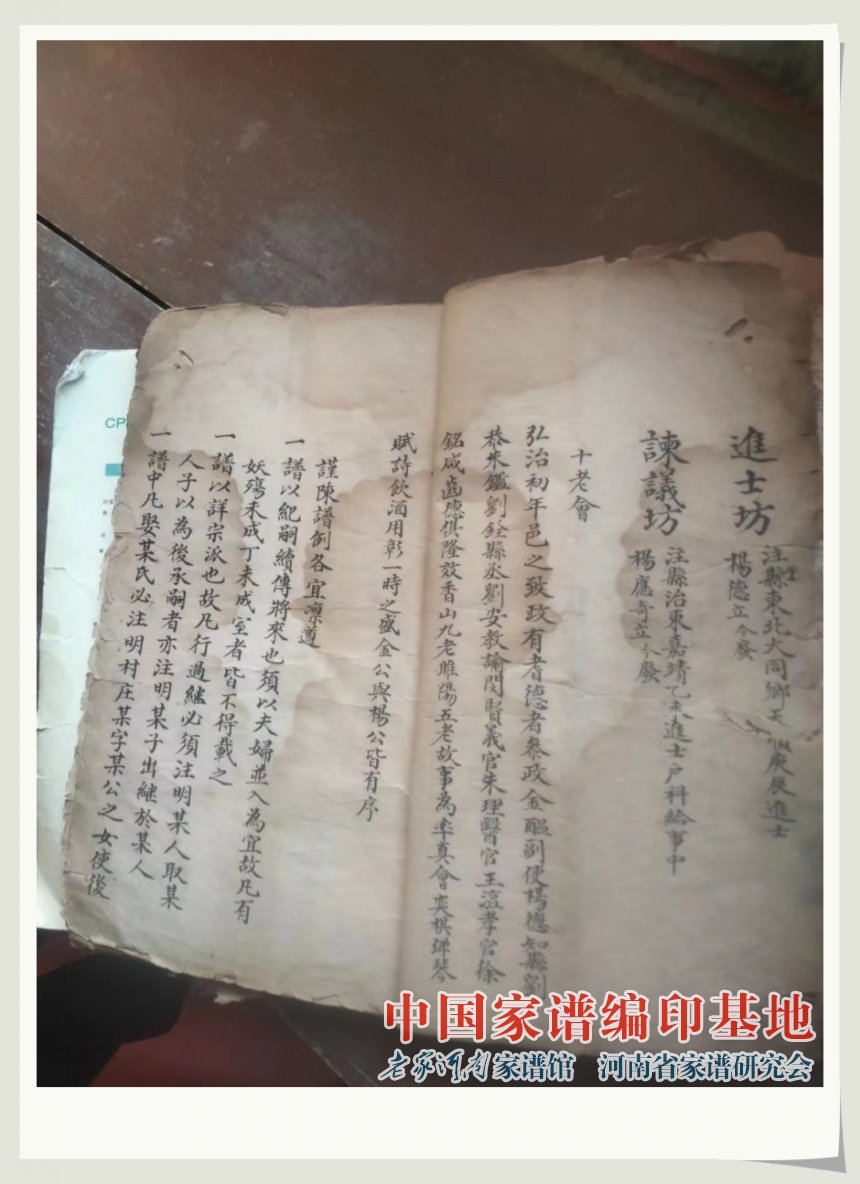 進士坊
注縣東北大同鄉天順庚辰進士
楊德立今廢
諫議坊
注縣治東嘉靖乙未進士户科給事中
楊應奇立今廢
十老會
弘治初年邑之致政有耆德者叅政金醞副使楊德知縣劉
恭朱鑑劉銓縣丞劉安教諭閔賢義官朱理醫官王溫孝官徐
銘咸齒德俱隆效香山九老睢陽五老故事為率真會奕棋弹琴
賦詩飲酒用彰一時之盛金公與楊公皆有序
謹陳譜例各宜凛遵
一譜以紀嗣續傳將來也須以夫婦並入為宜故凡有
妖殤未成丁未成室者皆不得載之
一譜以詳宗派也故凡行過継必須注明某人取某
人子以為後承嗣者亦注明某子出継於某人
一譜中凡娶某氏必注明村庄某字某公之女使後
CP
中国家谱编印基地
老家河南家谱馆 河南省家谱研究会